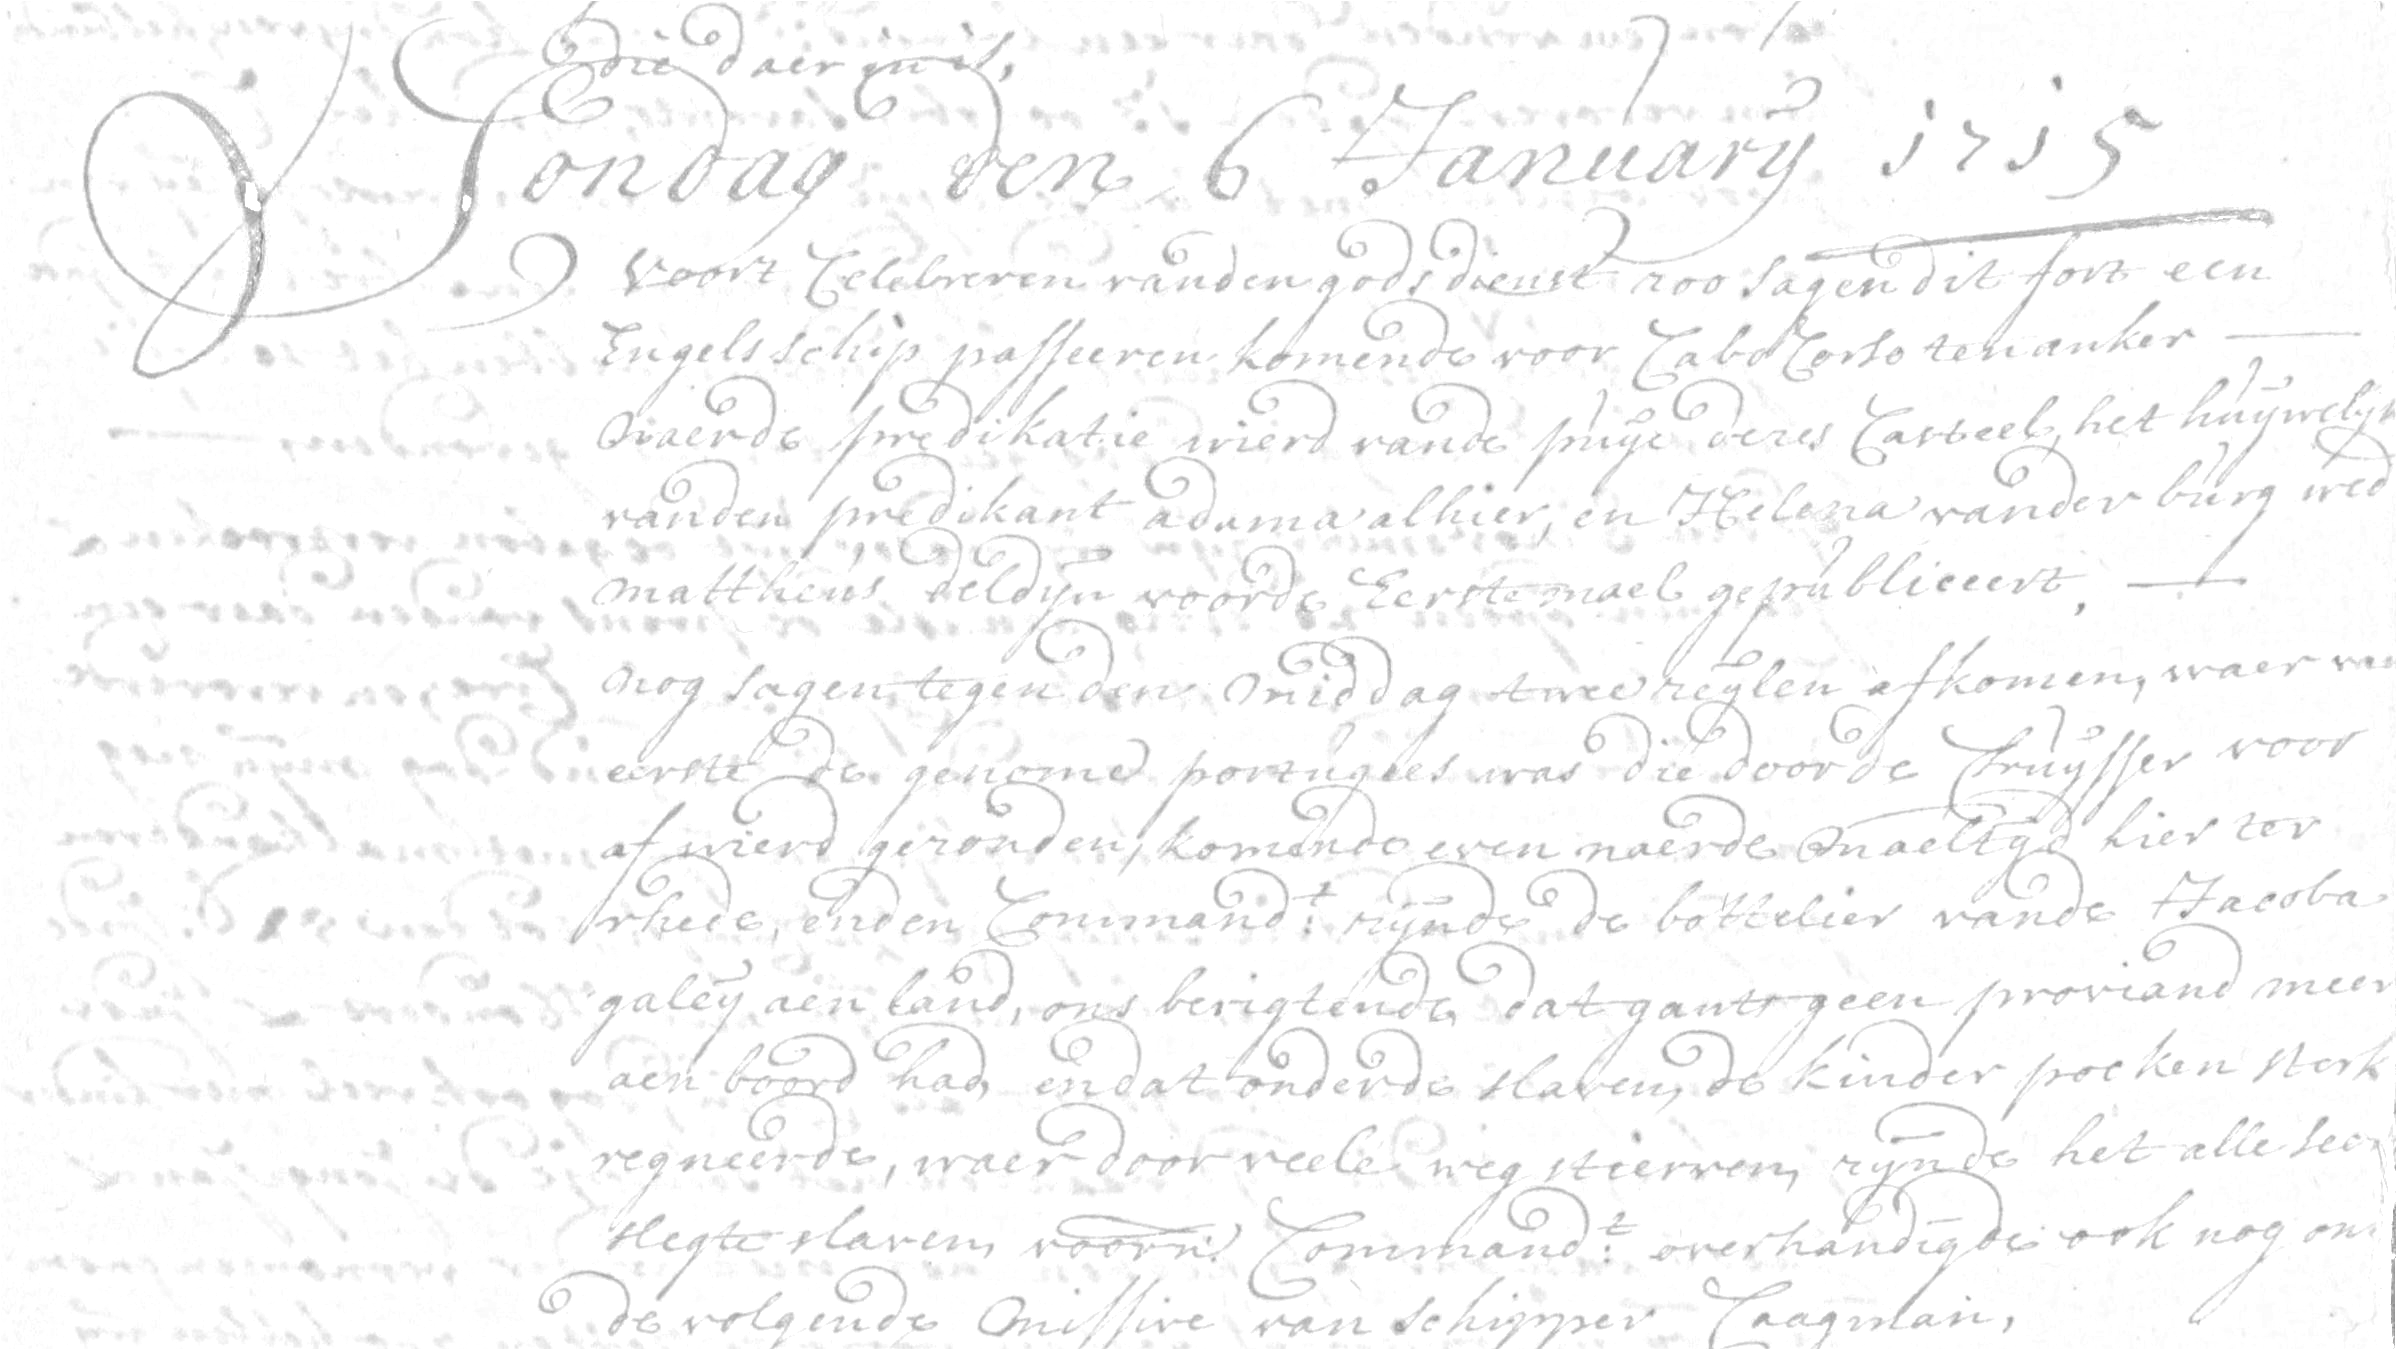 die daer in is,
Sondag den 6 January 1715
Voort Celebreren vanden gods dienst zoo sagen dit fort een
Engels schip passeeren komende voor Cabo Corso ten anker
Naerde predikatie wierd vande puye deses Casteel, het huywelyk
vanden predikant adama alhier, en Helena vander burg wed
Mattheus deldyn voorde Eerste mael gepubliceert,
Nog sagen tegen den Middag twee zeylen afkomen, waer van
eerste de genome portugees was die doorde Cruysser voor
af wierd gezonden, komende even naerde Maeltyd hier ter
rhede, enden Command:t zynde de bottelier vande Jacoba
galey aen land, ons berigtende dat gants geen proviand meer
aen boord had, en dat onderde slaven, de kinder pocken sterk
regneerde, waer door veele weg stierven, zynde het alle seer
slegte slaven, voorn: Command:t overhandigde ook nog ons
de volgende Missive van schipper Caagman,